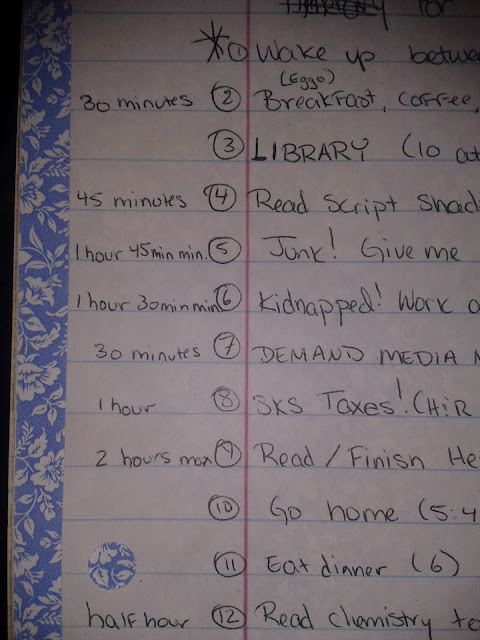 for
* ① Wake up betwee
(Eggo)
30 minutes ② Breakfast, coffee,
③ LIBRARY (10 out
45 minutes ④ Read Script Shad
1 hour 45min min. ⑤ Junk! Give me
1 hour 30min min ⑥ Kidnapped! Work o
30 minutes ⑦ DEMAND MEDIA
1 hour ⑧ SKS Taxes! (HiR
2 hours max ⑨ Read / Finish He
⑩ Go home (5:4
⑪ Eat dinner (6)
half hour ⑫ Read chemistry te